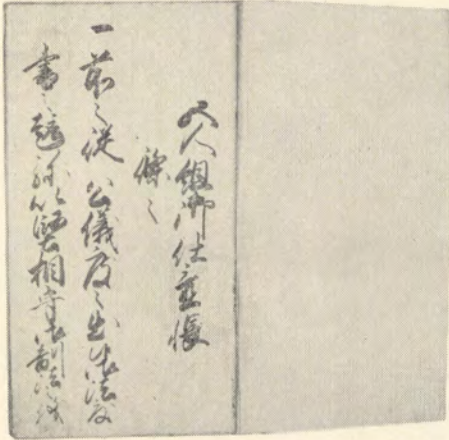 五人組御仕置帳
條々
一前々従公儀度々出御法度
書之趣弥以堅相守御制法之儀